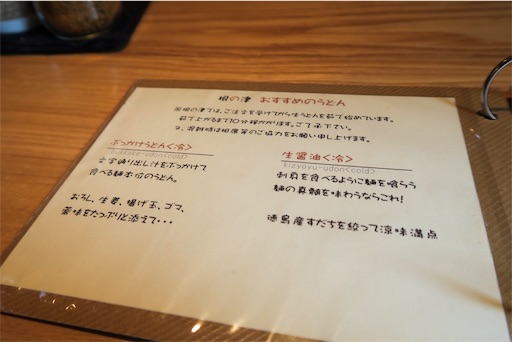 根の津 おすすめのうどん
根の津では、ご注文を受けてからうどんを茹で始めています。
茹で上がるまで10分程かかります。ご了承下さい。
又、混雑時は相席等のご協力をお願い申し上げます。
ぶっかけうどん<冷>
bukkake-udon<cold>
辛口搾り出し汁をぶっかけて
食べる麺本位のうどん。
おろし、生姜、揚げ玉、ゴマ、
薬味をたっぷりと添えて・・・
生醤油<冷>
kizyoyu-udon<cold>
刺身を食べるように麺を喰らう
麺の真髄を味わうならこれ!
徳島産すだちを絞って涼味満点